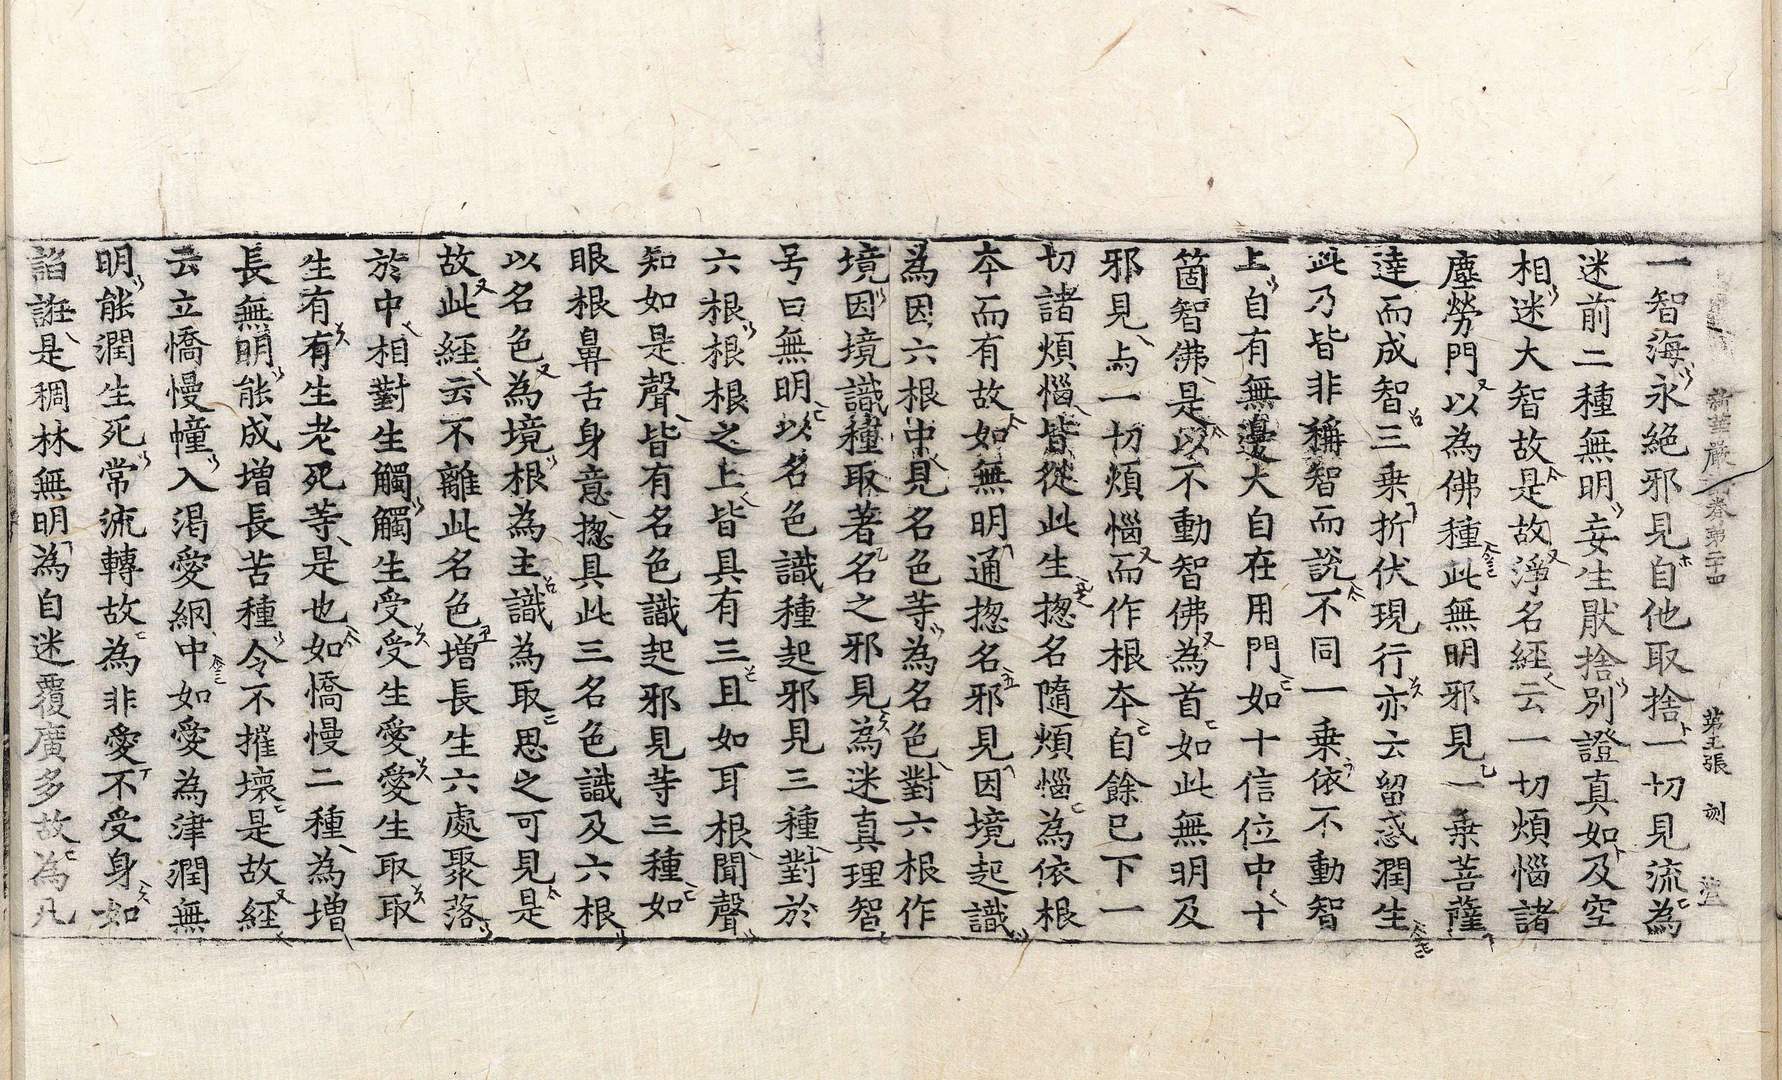 新華嚴 卷第二十四 第五張
一智海永絕邪見自他取捨一切見流為
迷前二種無明妄生猒捨別證真如及空
相迷大智故是故淨名經云一切煩惱諸
塵勞門以為佛種此無明邪見一乗菩薩
達而成智三乗折伏現行亦云留惑潤生
此乃皆非稱智而說不同一乗依不動智
上自有無邊大自在用門如十信位中十
箇智佛是以不動智佛為首如此無明及
邪見与一切煩惱而作根夲自餘已下一
切諸煩惱皆從此生揔名隨煩惱為依根
夲而有故如無明通揔名邪見因境起識
為因六根中見名色等為名色對六根作
境因境識種取著名之邪見為迷真理智
号曰無明以名色識種起邪見三種對於
六根根根之上皆具有三且如耳根聞聲
知如是聲皆有名色識起邪見等三種如
眼根鼻舌身意揔具此三名色識及六根
以名色為境根為主識為取思之可見是
故此經云不離此名色增長生六處聚落
於中相對生觸觸生受受生愛愛生取取
生有有生老死等是也如憍慢二種為增
長無明能成增長苦種令不摧壞是故經
云立憍慢幢入渴愛網中如愛為津潤無
明能潤生死常流轉故為非愛不受身如
諂誑是稠林無明為自迷覆廣多故為凡